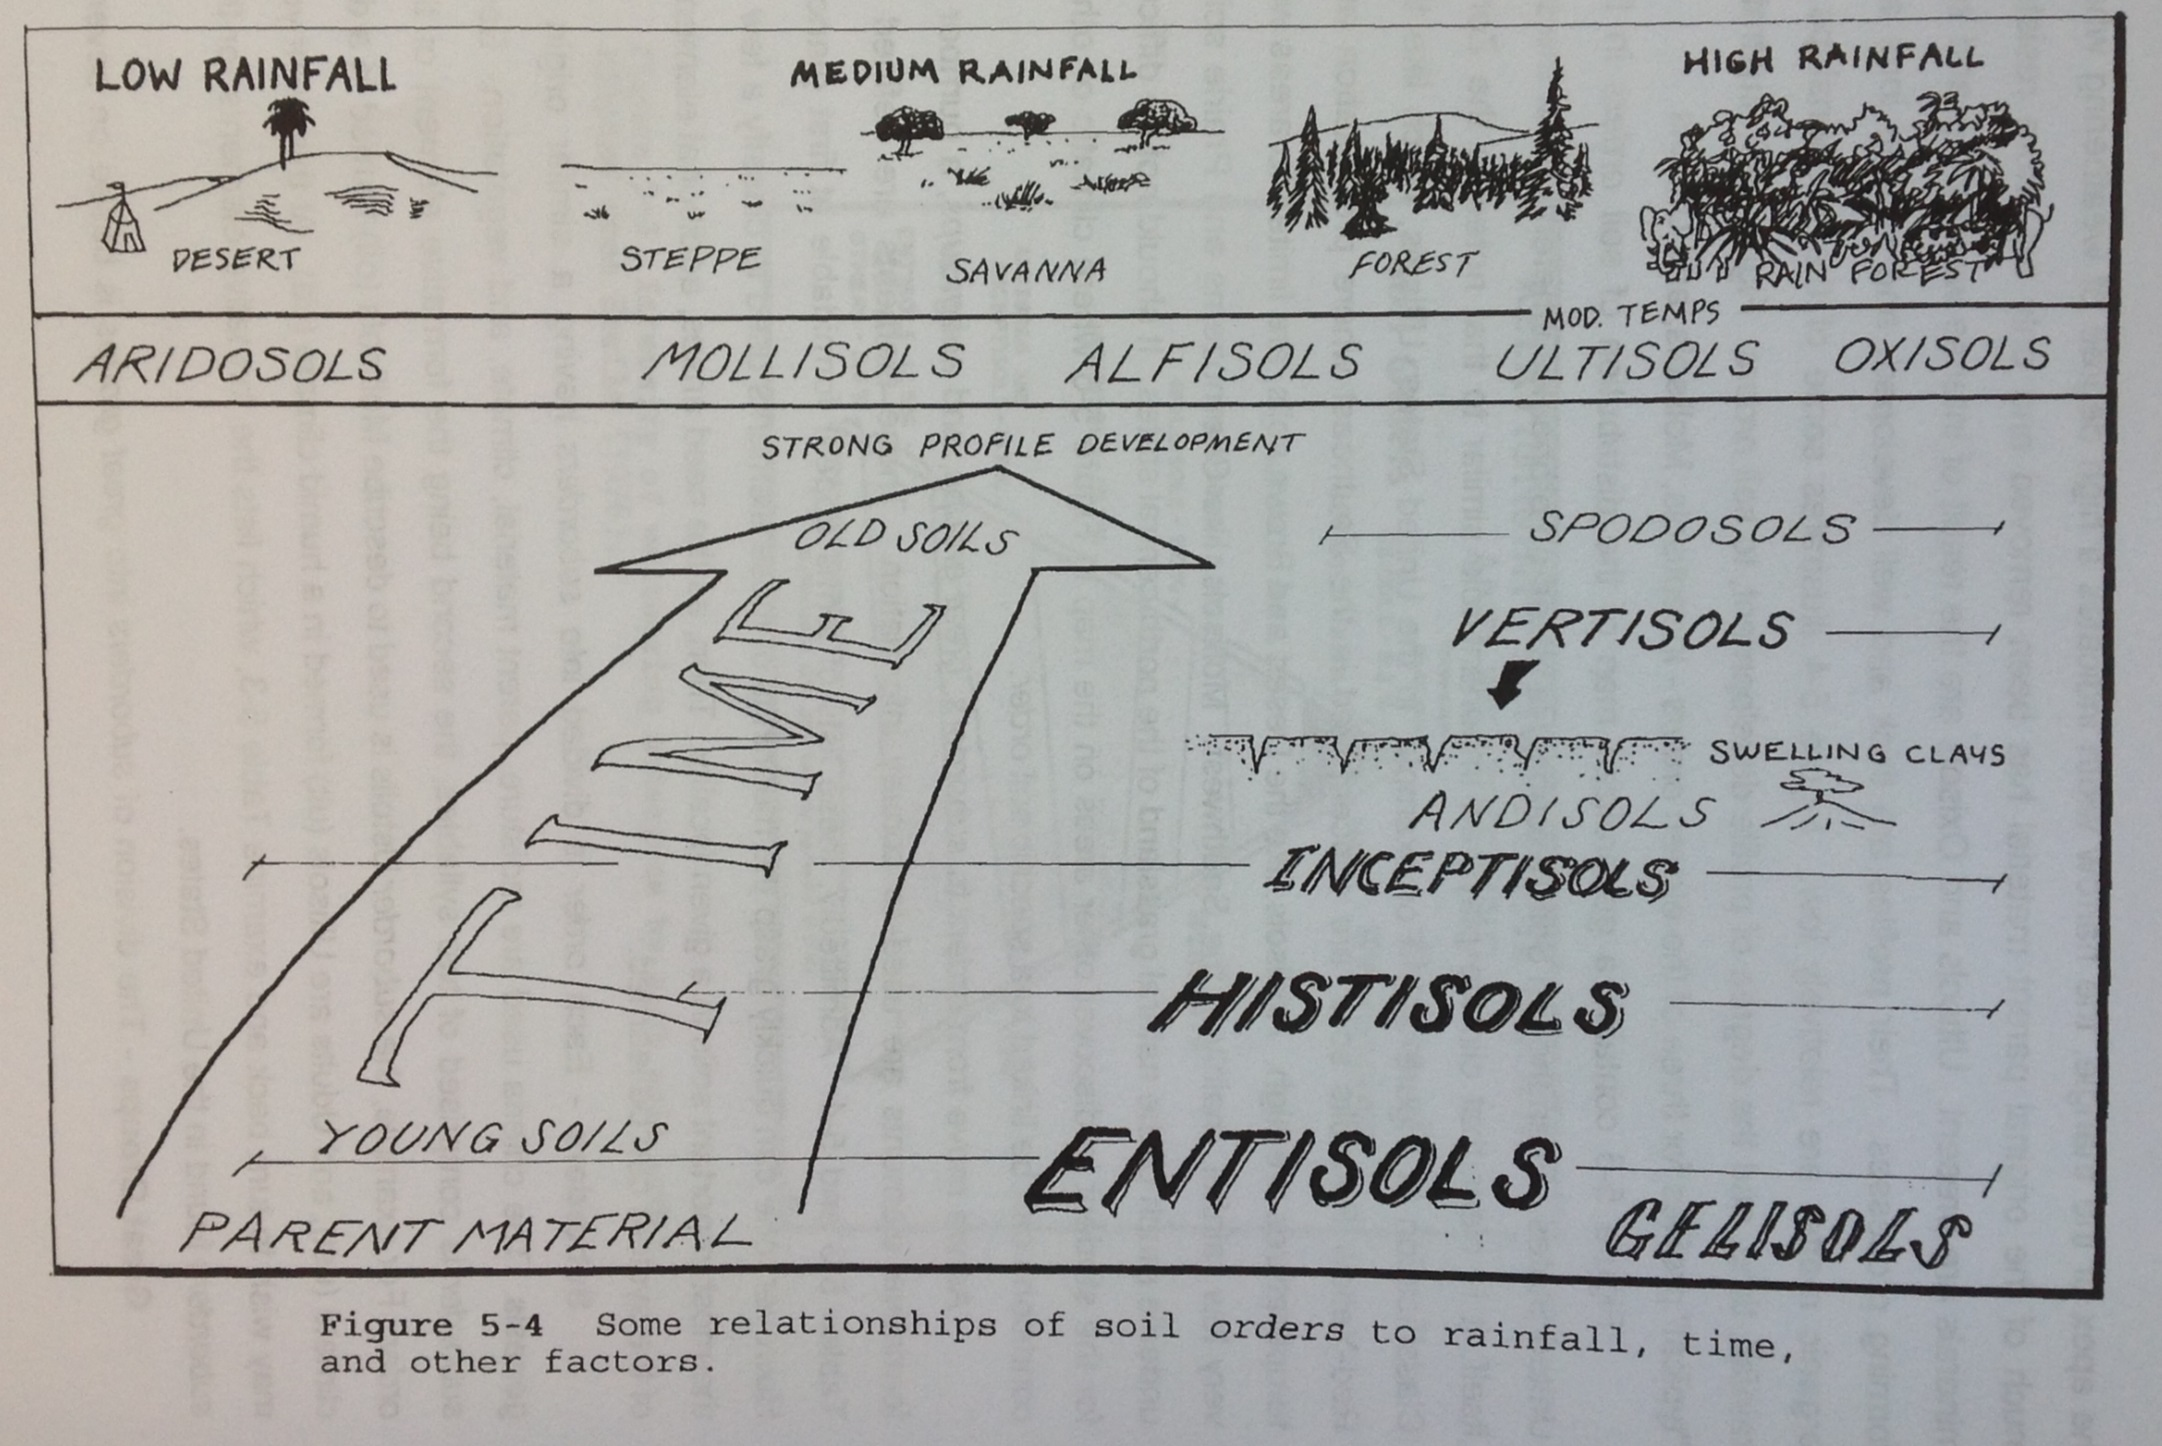 LOW RAINFALL
MEDIUM RAINFALL
HIGH RAINFALL
DESERT
STEPPE
SAVANNA
FOREST
RAIN FOREST
MOD. TEMPS
ARIDOSOLS
MOLLISOLS
ALFISOLS
ULTISOLS
OXISOLS
STRONG PROFILE DEVELOPMENT
OLD SOILS
TIME
YOUNG SOILS
PARENT MATERIAL
SPODOSOLS
VERTISOLS
SWELLING CLAYS
ANDISOLS
INCEPTISOLS
HISTISOLS
ENTISOLS
GELISOLS
Figure 5-4 Some relationships of soil orders to rainfall, time,
and other factors.